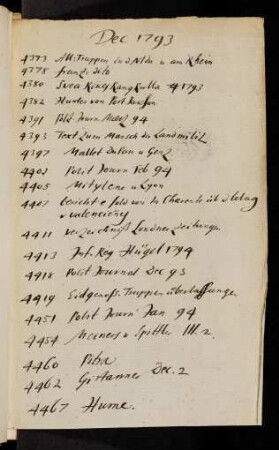 Dec 1793
4373 Allt. Truppen in d Nldn u am Rhein
4378 franz dito
4380 Svea Rikes 1793
4382 Hunter von Port Jackson
4391 Polit. Journ. Maerz 94
4393 Text zum Marsch der Landmiliz
4397 Mallet du Pan u Genz
4402 Polit Journ Feb 94
4405 Mitylene u Lyon
4407 bericht e feld von der Charente üb d belag
u valenciennes
4411 verzeichniß Londner Zeitungen
4413 Inf. Reg Hügel 1794
4418 Polit Journal Dec 93
4419 Eidgenoss. Truppen überlassungen
4451 Polit Journ Jan 94
4454 Meiners u Spittler III. 2.
4460
4462 Girtanner Dec. 2
4467 Hume.